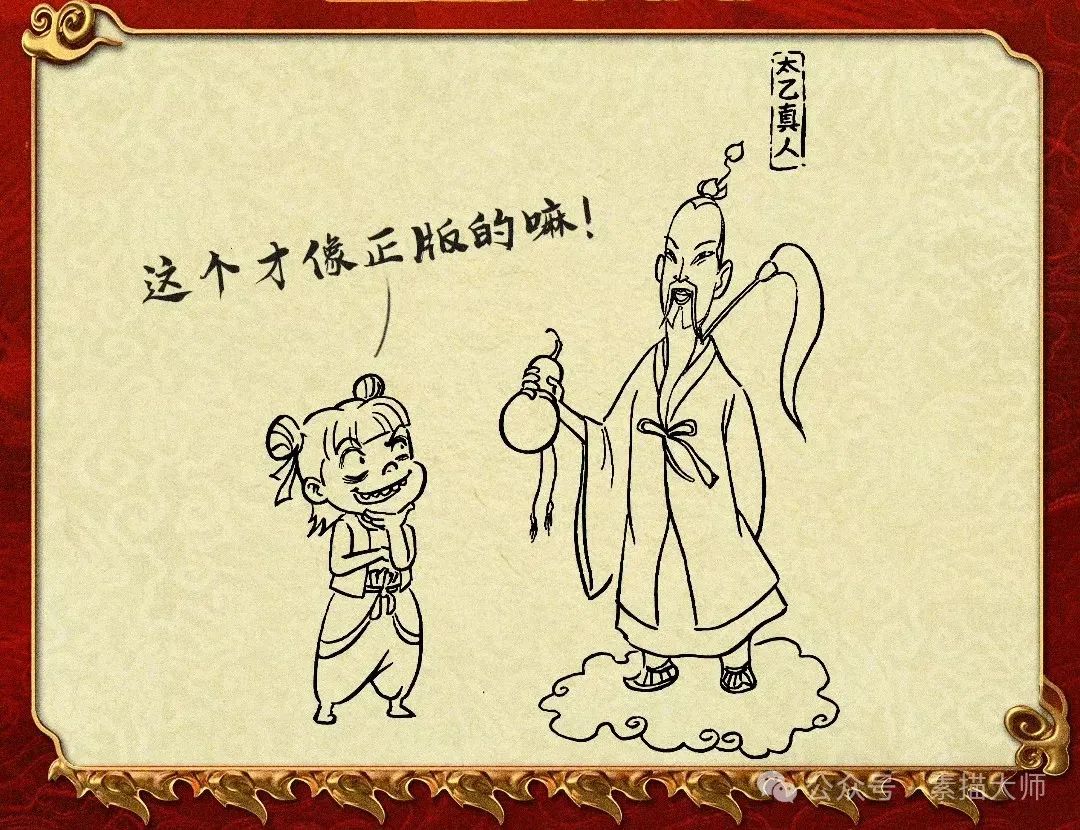 太乙真人
这个才像正版的嘛！
公众号 · 素描大师